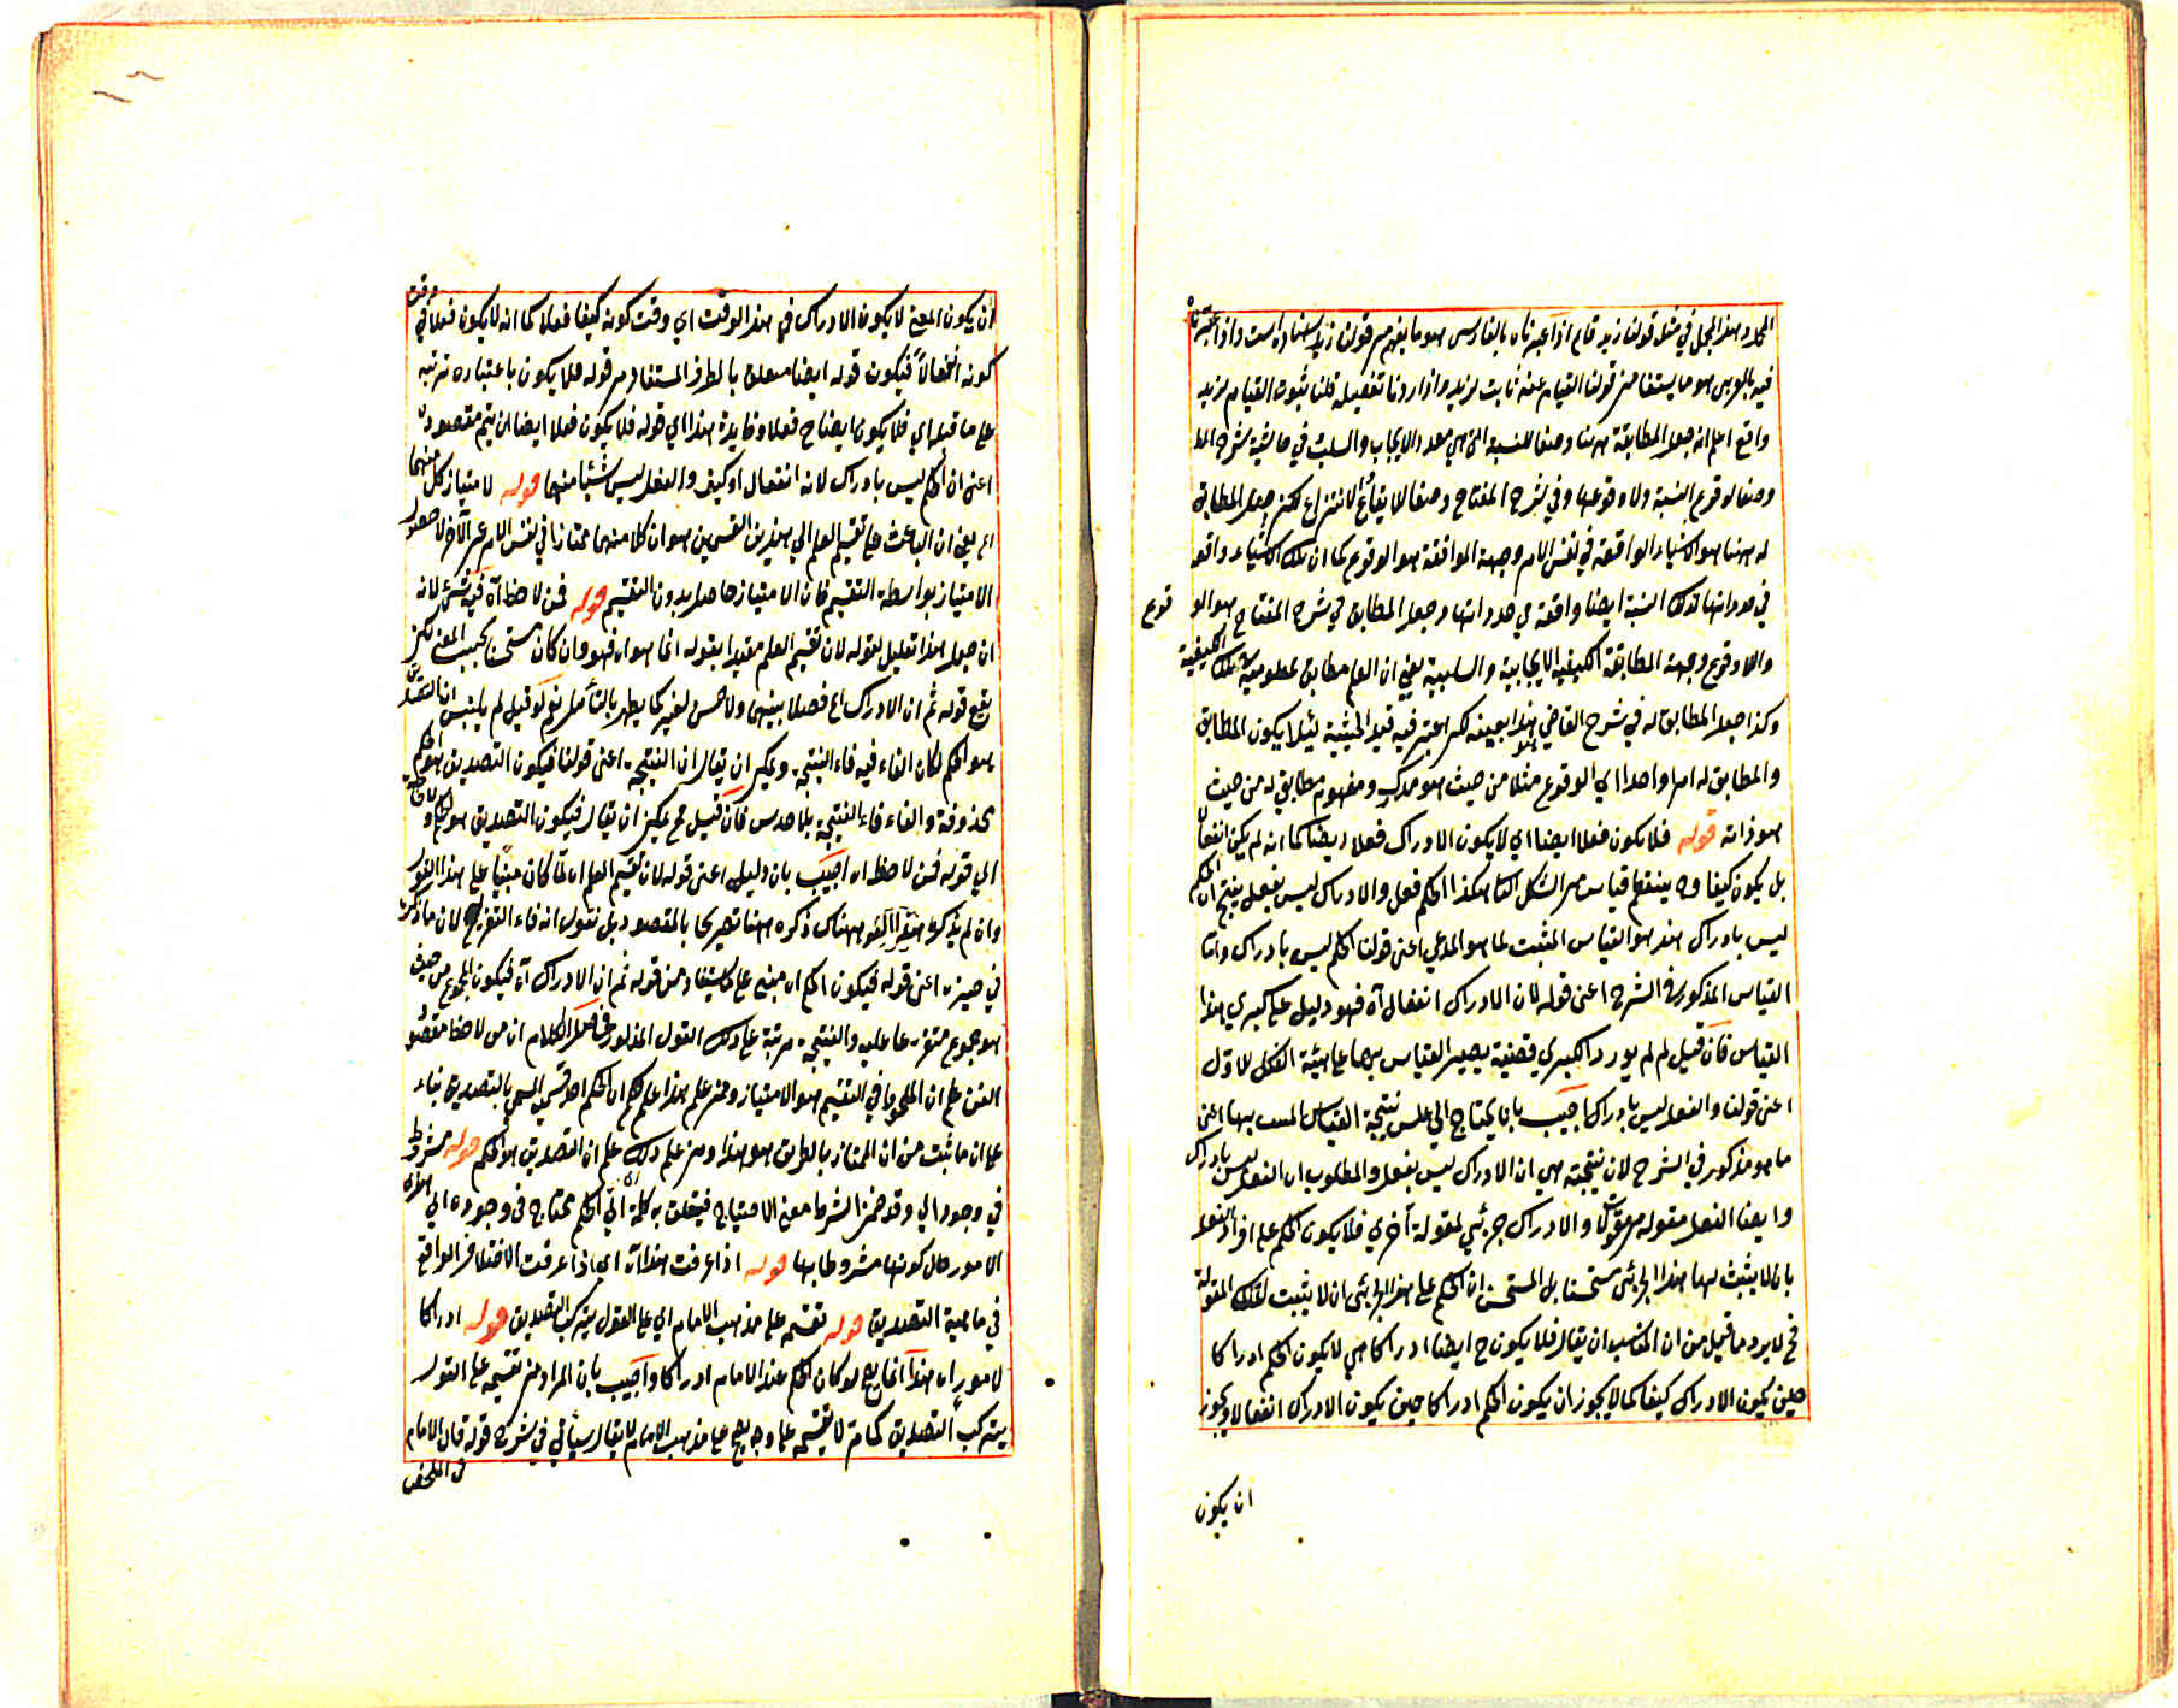 المجمل وهذا المجمل في مثل قولنا زيد قائم اذا عبرناه بالفارسي هو ما يفهم من قولنا زيد ايستاده است واذا عبرنا
فيه بالعربي هو ما يستفاد من قولنا القيام عنه ثابت لزيد واذا اردنا تفصيله قلنا ثبوت القيام لزيد
واقع اعلم انه جعل المطابقة ههنا وصفا للنسبة التي هي مورد الايجاب والسلب في حاشية شرح المط
وصفا لوقوع النسبة ولا وقوعها وفي شرح المفتاح وصفا للايقاع والانتزاع لكن جعل المطابق
له ههنا هو الاشياء الواقعة في نفس الامر وجهة الموافقة هو الوقوع كما ان تلك الاشياء واقعة
في حدود انها كذلك النسبة ايضا واقعة في حدود انها وجعل المطابق في شرح المفتاح هو الو قوع
واللا وقوع وجهة المطابقة الكيفية الايجابية والسلبية يعني ان العلم مطابق لمعلومه تلك الكيفية
وكذا جعل المطابق له في شرح القاضي هذا بعينه لكن اعتبر فيه قيد الحيثية لئلا يكون المطابق
والمطابق له امرا واحدا اي الوقوع مثلا من حيث هو مدرك ومفهوم مطابق له من حيث
هو ذاته قوله فلا يكون فعلا ايضا اي لا يكون الادراك فعلا ايضا كما انه لم يكن انفعالا
بل يكون كيفا وح ينتظم قياس من الشكل الثاني هكذا الحكم فعل والادراك ليس بفعل ينتج ان الحكم
ليس بادراك هذا هو القياس المثبت لما هو المدعي اعني قولنا الحكم ليس بادراك واما
القياس المذكور في الشرح اعني قوله لان الادراك انفعال اه فهو دليل على كبري هذا
القياس فان قيل لم لم يورد الكبري قضية يصير القياس بها على هيئة الشكل الاول
اعني قولنا والفعل ليس بادراك اجيب بان يحتاج الي عكس نتيجة القياس المثبت بها اعني
ما هو مذكور في الشرح لان نتيجته هي ان الادراك ليس بفعل والمطلوب ان الفعل ليس بادراك
وايضا الفعل مقولة من المقولات والادراك جزئي لمقولة اخري فلا يكون الحكم على افراد الفعل
بان لا يثبت لها هذا الجزئي مستحسنا بل المستحسن ان الحكم على هذا الجزئي بان لا يثبت لتلك المقولة
فح لا يرد ما قيل من ان المناسب ان يقال فلا يكون ح ايضا ادراكا اي لا يكون الحكم ادراكا
حين يكون الادراك كيفا كما لا يجوز ان يكون الحكم ادراكا حين يكون الادراك انفعالا ويجوز
ان يكون
ان يكون المعني لا يكون الادراك في هذا الوقت اي وقت كونه كيفا فعلا كما انه لا يكون فعلا في وقت
كونه انفعالا فيكون قوله ايضا متعلق بالظرف المستفاد من قوله فلا يكون باعتبار ترتبه
على ما قبله اي فلا يكون ايضا ح فعلا وفايدة هذا اي قوله فلا يكون فعلا ايضا ان يتم مقصوده
اعني ان الحكم ليس بادراك لانه انفعال او كيف والفعل ليس شيئا منهما قوله لامتياز كل منهما
اه يعني ان الباعث على تقسيم العلم الي هذين القسمين هو ان كلا منهما ممتاز في نفس الامر عن الآخر لا حصول
الامتياز بواسطة التقسيم فان الامتياز حاصل بدون التقسيم قوله فمن لاحظ آه فيه شئ لانه
ان جعل هذا تعليل لقوله لان تقسيم العلم مقيدا بقوله انما هو اه فهو وان كان مستحسنا بحسب المعني لكن
يقع قوله ثم ان الادراك اه فصلا بينهما ولا حسن لغيره كما يظهر بالتأمل نعم لو قيل لم يلتبس ان التصديق
هو الحكم لكان الفاء فيه فاء النتيجة ويمكن ان يقال ان النتيجة اعني قولنا فيكون التصديق هو الحكم
محذوفة والفاء فاء النتيجة بلا حدس فان قيل لم يمكن ان يقال فيكون التصديق هو الحكم ولا حاجة
الي قوله فمن لاحظ اه اجيب بان دليله اعني قوله لان تقسيم العلم اه لما كان مبنيا على هذا القول
وان لم يذكره هناك ذكره ههنا تصريحا بالمقصود بل نقول انه فاء التفريع لان ما ذكره
في حيزه اعني قوله فيكون الحكم اه مبني على ما يستفاد من قوله ثم ان الادراك آه فيكون المجموع من حيث
هو مجموع متفرعا عليه والنتيجة مرتبة على ذلك القول المذكور فحاصل الكلام ان من لاحظ مقصود
الفن علم ان الملحوظ في التقسيم هو الامتياز ومن علم هذا علم ان الحكم احد قسميه المسمي بالتصديق بناء
على ان ما ثبت من ان الممتاز بالطريق هو هذا ومن علم ذلك علم ان التصديق هو الحكم قوله مشروط
في وجوده الي وقد ضمن الشرط معني الاحتياج فيتعلق به كلمة الي اي الحكم محتاج في وجوده الي هذه
الامور حال كونها مشروطا بها قوله اذا عرفت هذا آه اي اذا عرفت الاختلاف الواقع
في ماهية التصديق قوله تقسيم على مذهب الامام اي على القول بتركب التصديق قوله ادراكا
لامور اه هذا انما يصح لو كان الحكم عند الامام ادراكا واجيب بان المراد من تقسيمه على القول
بتركب التصديق كما مر لا تقسيمه على وجه يصح على مذهب الامام لا يقال سياتي في شرح قوله قال الامام
في الملخص